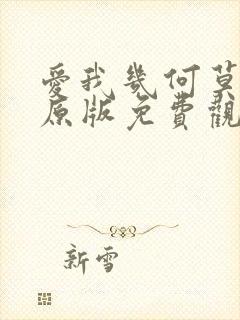 愛我幾何莫
原版免費觀
新雪